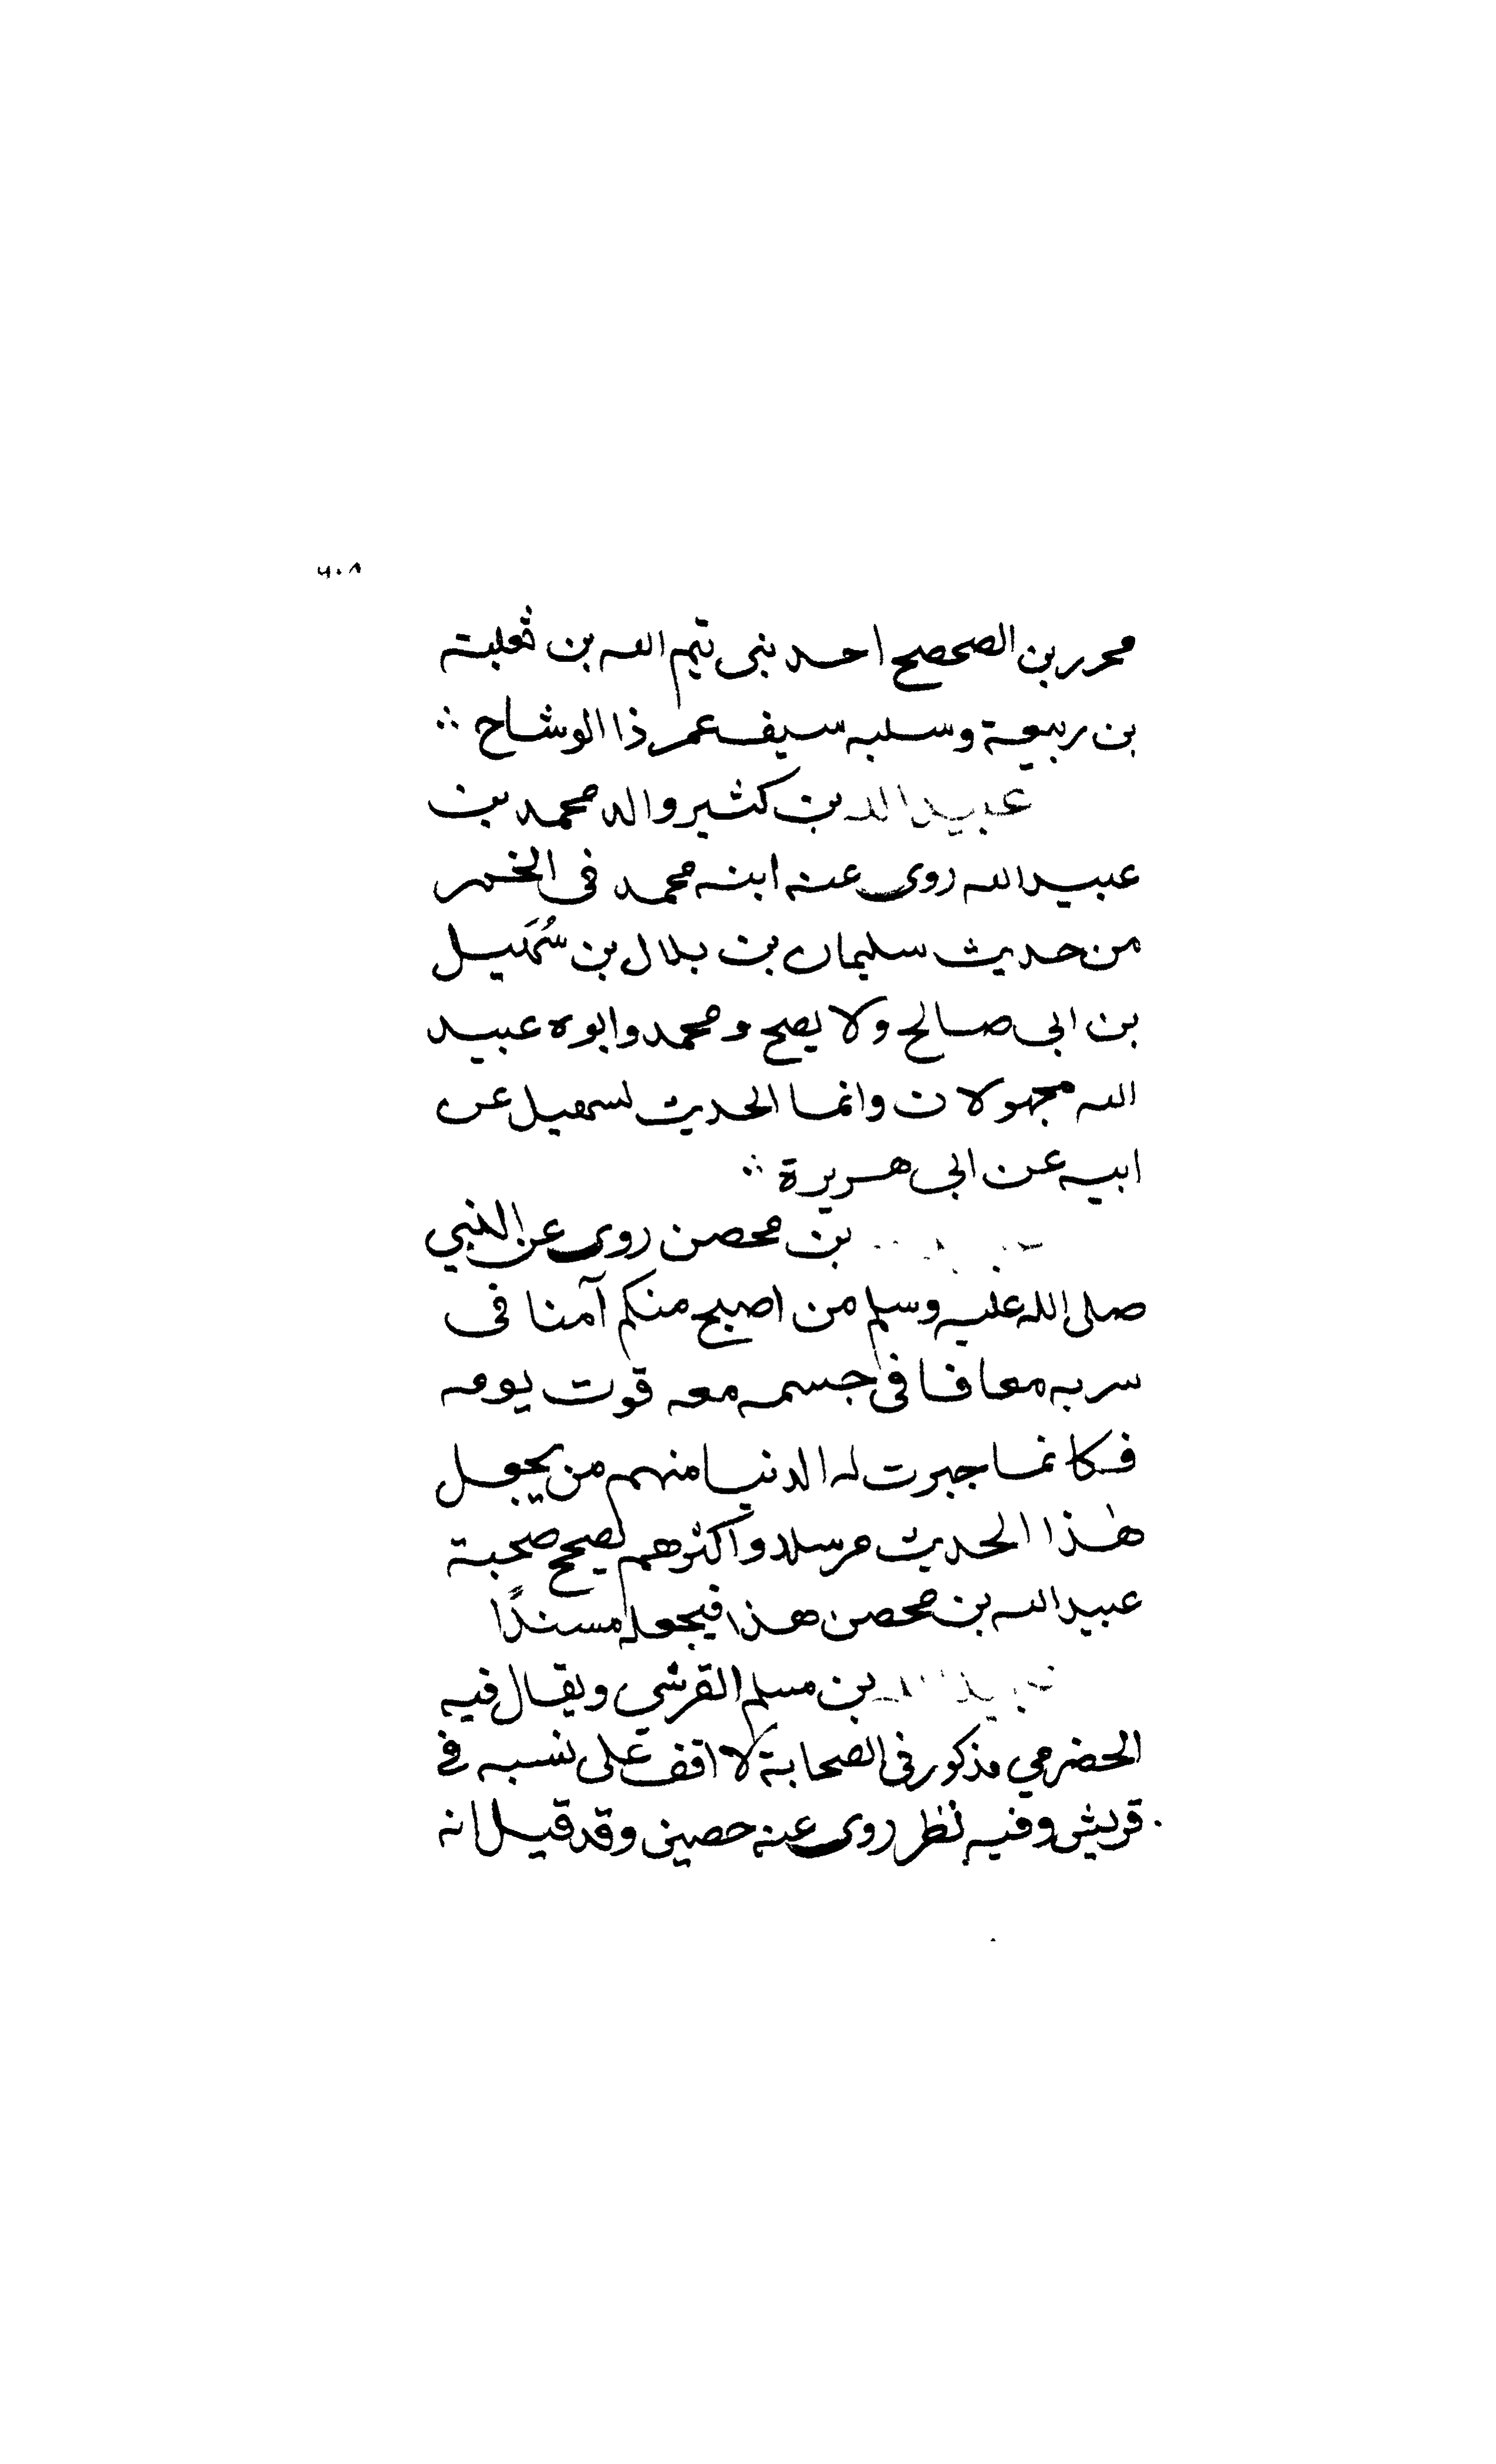 ٦٠٨
محرر بن الصحصح احد بنى تيم الله بن ثعلبة
بن ربيعة وسلبه سيف عمر ذا الوشاح
عبيد الله بن كثير والد محمد بن
عبيد الله روى عنه ابنه محمد فى الخمر
من حديث سليمان بن بلال بن سُهَيل
بن ابى صالح ولا يصح ومحمد وابوه عبيد
الله مجهولان وانما الحديث لسهيل عن
ابيه عن ابى هريرة
بن محصن روى عن النبي
صلى الله عليه وسلم من اصبح منكم آمنا فى
سربه معافا فى جسمه معه قوت يومه
فكانما جبرت له الدنيا منهم من يجعل
هذا الحديث مرسلا واكثرهم يصحح صحبة
عبيد الله بن محصن هذا فيجعله مسندًا
بن مسلم القرشي ويقال فيه
الحضرمي مذكور فى الصحابة لا اقف على نسبه فى
قريش وفيه نظر روى عنه حصين وقد قيل انه